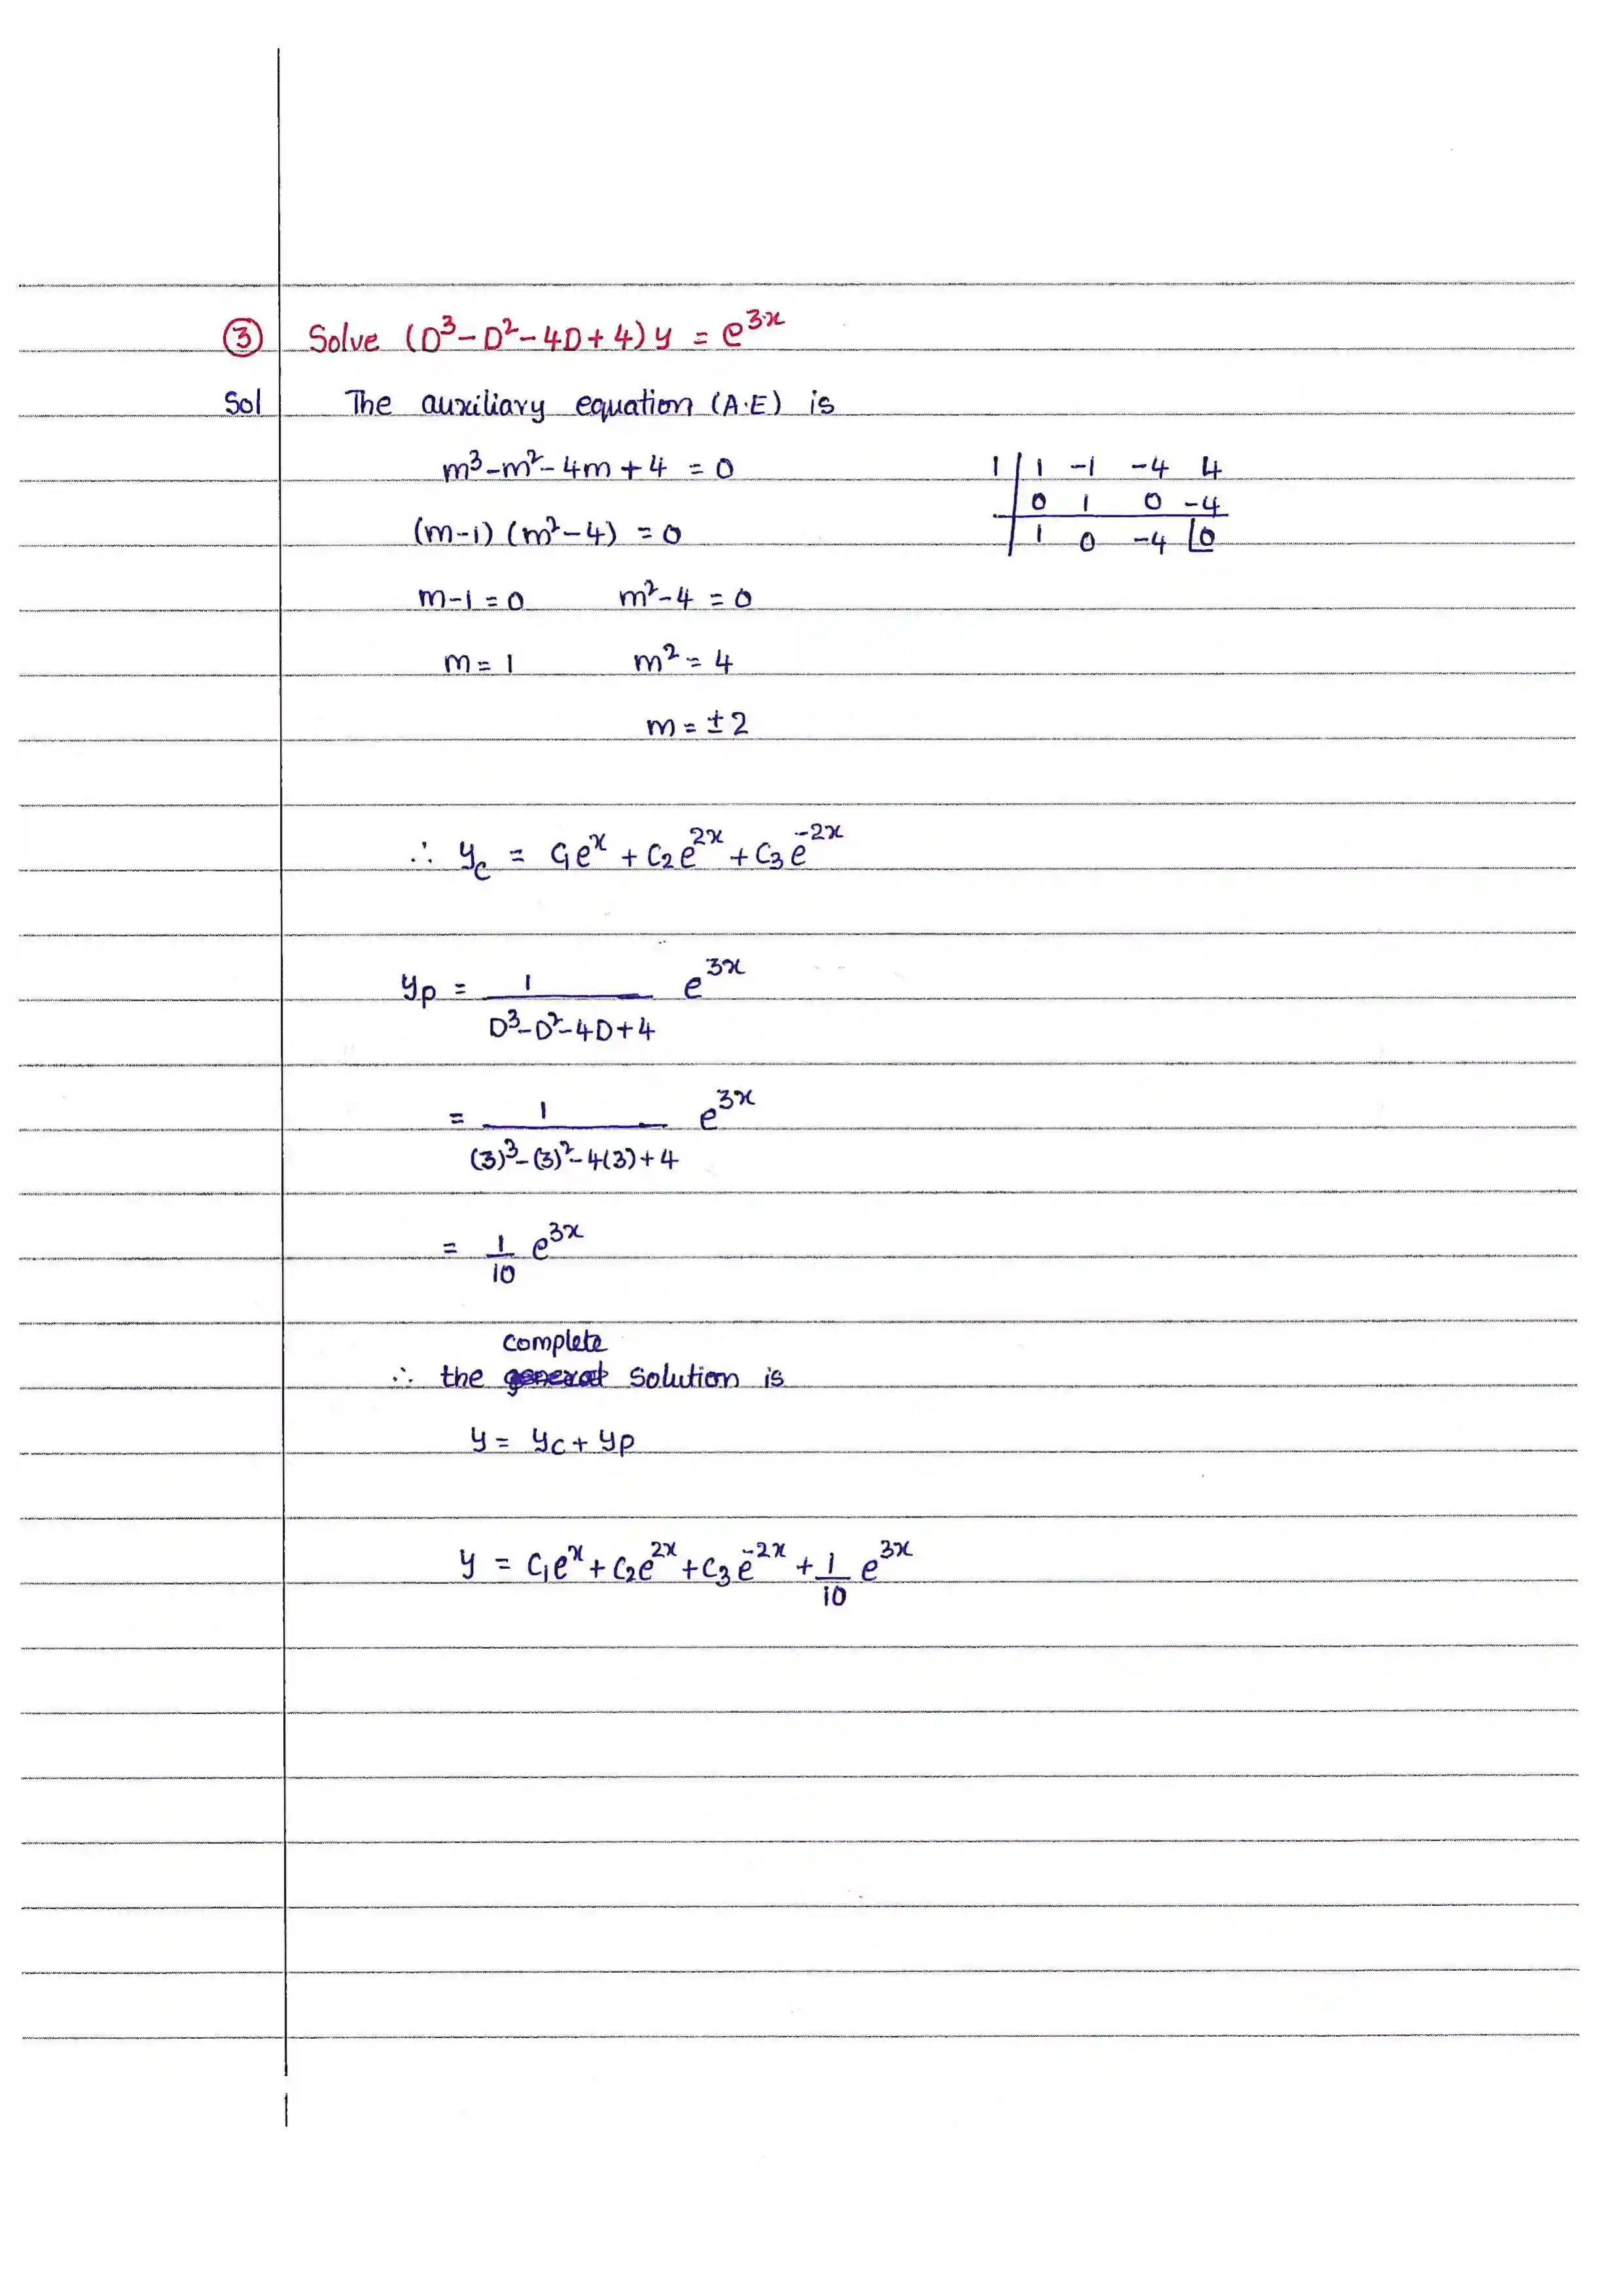 ③ Solve (D³-D²-4D+4)y = e³ˣ
Sol The auxiliary equation (A.E) is
m³-m²-4m+4 = 0
1 | 1 -1 -4 4
0 1 0 -4
1 0 -4 |0
(m-1) (m²-4) = 0
m-1 = 0 m²-4 = 0
m = 1 m² = 4
m = ±2
∴ y_c = C₁eˣ + C₂e²ˣ + C₃e⁻²ˣ
y_p = 1/(D³-D²-4D+4) e³ˣ
= 1/((3)³-(3)²-4(3)+4) e³ˣ
= 1/10 e³ˣ
complete
∴ the general solution is
y = y_c + y_p
y = C₁eˣ + C₂e²ˣ + C₃e⁻²ˣ + 1/10 e³ˣ